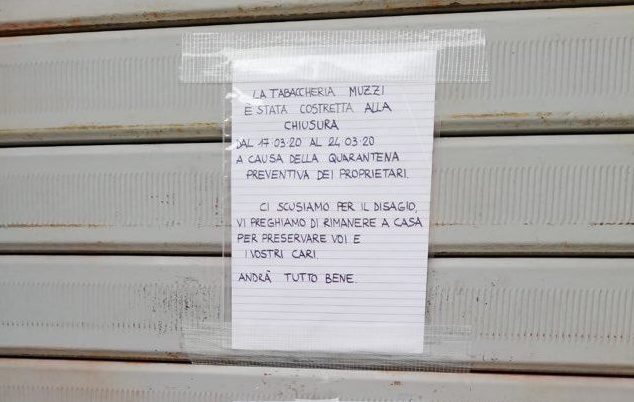 LA TABACCHERIA MUZZI
È STATA COSTRETTA ALLA
CHIUSURA
DAL 17 03.20 AL 24 03.20
A CAUSA DELLA QUARANTENA
PREVENTIVA DEI PROPRIETARI.
CI SCUSIAMO PER IL DISAGIO,
VI PREGHIAMO DI RIMANERE A CASA
PER PRESERVARE VOI E
I VOSTRI CARI.
ANDRÀ TUTTO BENE.